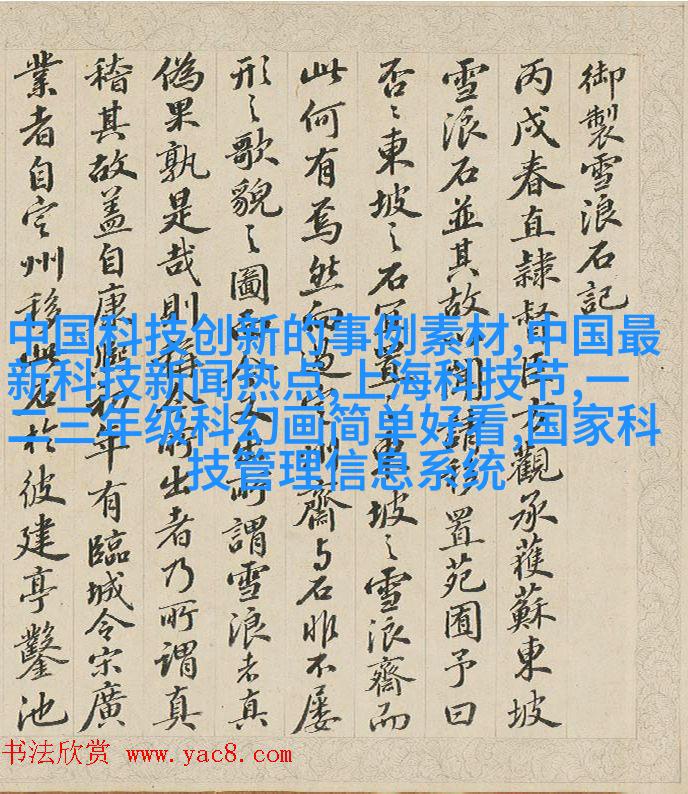 御製雪浪石記
丙戌春直隸督臣方觀承獲蘇東坡
雪浪石並其故以聞請移置苑囿予曰
否〻東坡之石宜置東坡之雪浪齋而
此何有焉然而過定州齋与石非不屡
形之歌貌之圖而今又出所謂雪浪者真
偽果孰是哉則稱今所出者乃所謂真
稽其故盖自康熙初年有臨城令宋廣
業者自定州移此石於彼建亭鑿池
中国科技创新的事例素材,中国最
新科技新闻热点,上海科技节,一
二三年级科幻画简单好看,国家科
技管理信息系统
书法欣赏 www.yac8.com